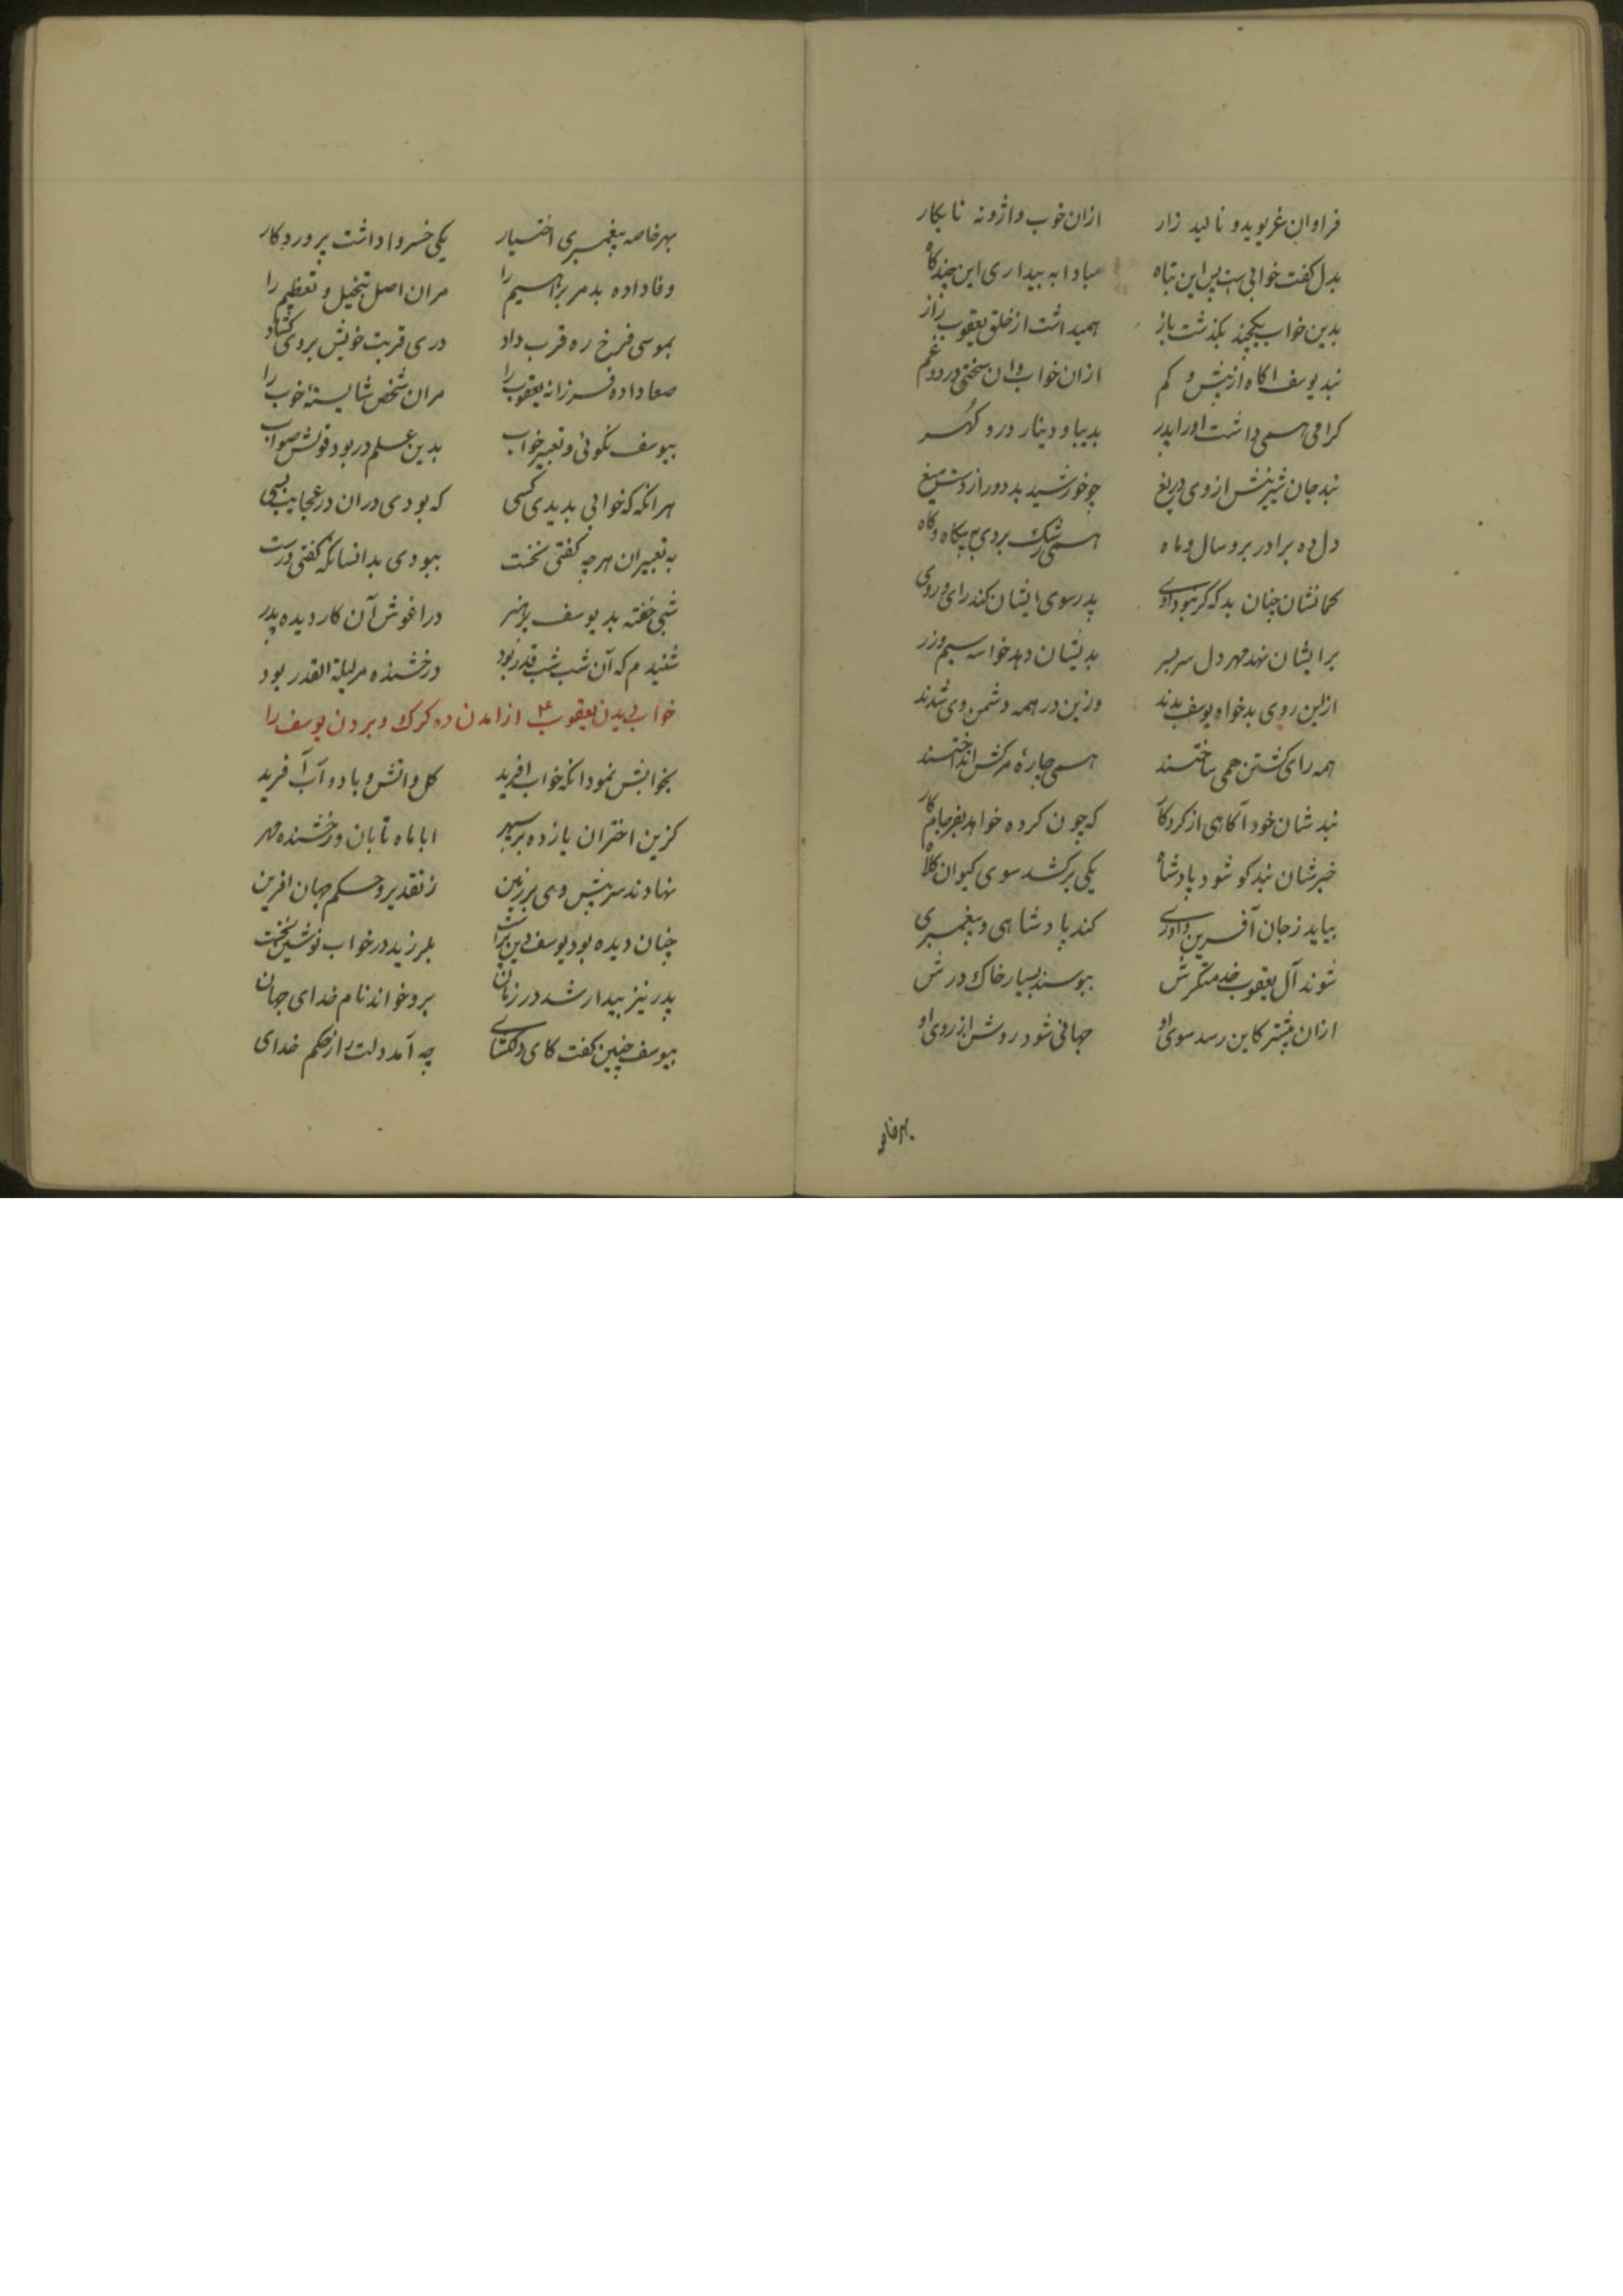 فراوان غریوید و نالید زار ازان خوب واژونه نابکار
بدل کفت خوابی است پس این تباه مبادا به بیداری این چندکاه
بدین خواب یکچند بکذشت باز همیداشت از خلق یعقوب راز
نبد یوسف اکاه از بیش و کم ازان خواب وان سختی و درد و غم
کرامی همی داشت اورا پدر بدیبا و دینار و در و کهر
نبد جان شیرینش از وی دریغ چو خورشید بد دور از دست میغ
دل ده برادر برو سال و ماه همی رشک بردی به بیکاه و کاه
کمانشان چنان بد که کر نبودی پدر سوی ایشان کند رای و روی
برایشان نهد مهر دل سربسر بدیشان دهد خواسته سیم و زر
ازین روی بدخواه یوسف بدند وزین در همه دشمن وی شدند
همه رای کشتن همی ساختند همی چاره مرکش انداختند
نبد شان خود آکاهی از کردکار که چون کرده خواهد بفرجام کار
خبرشان نبد کو شود پادشاه یکی برکشد سوی کیوان کلاه
بیاید ز جان آفرین داوری کند پادشاهی و پیغمبری
شوند آل یعقوب خدمتکرش ببوسند بسیار خاک درش
ازان پیشتر کاین رسد سوی او جهانی شود روشن از روی او
بهر خاصه
بهر خاصه پیغمبری اختیار یکی خسروا داشت پروردکار
وفا داده بد مر براهیم را مران اصل تبخیل و تعظیم را
بموسی فرخ ره قرب داد دری قربت خویش بر وی کشاد
صفا داده فرزانه یعقوب را مران شخص شایسته خوب را
بیوسف نکوئی و تعبیر خواب بدین علم در بود قولش صواب
هرانکه که خوابی بدیدی کسی که بودی دران در عجایب بسی
به تعبیر ان هرچه کفتی نخست ببودی بدانسانکه کفتی درست
شبی خفته بد یوسف پرهنر دراغوش آن کاردیده پدر
شنیدم که آن شب شب قدر بود درخشنده مر لیلة القدر بود
خواب دیدن یعقوب ع از امدن ده کرک و بردن یوسف را
بخوابش نمود انکه خواب افرید کل و اتش و باد و آب آفرید
کزین اختران یازده بر سپهر ابا ماه تابان و رخشنده مهر
نهادند سر پیش وی بر زمین ز تقدیر و حکم جهان افرین
چنان دیده بود یوسف دین پرست بلرزید در خواب نوشین نخست
پدر نیز بیدار شد در زمان برو خواند نام خدای جهان
بیوسف چنین کفت کای دلکشای چه آمد دلت را ز حکم خدای